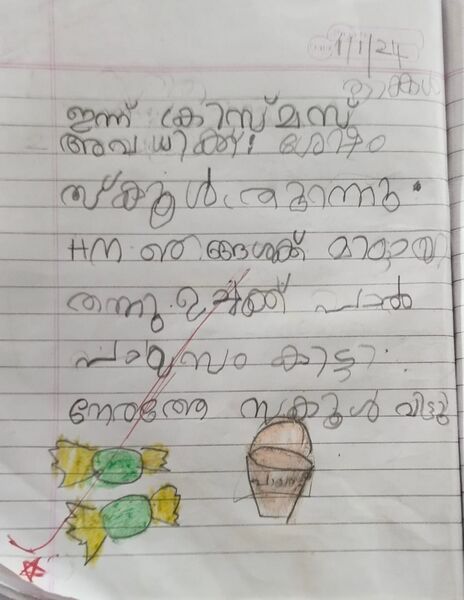 1/1/24
തിങ്കൾ
ഇന്ന് ക്രിസ്മസ്
അവധിക്ക് ശേഷം
സ്കൂൾ തുറന്നു.
HM ഞങ്ങൾക്ക് മിഠായി
തന്നു. ഉച്ചക്ക് പാൽ
പായസം കിട്ടി.
നേരത്തേ സ്കൂൾ വിട്ടു